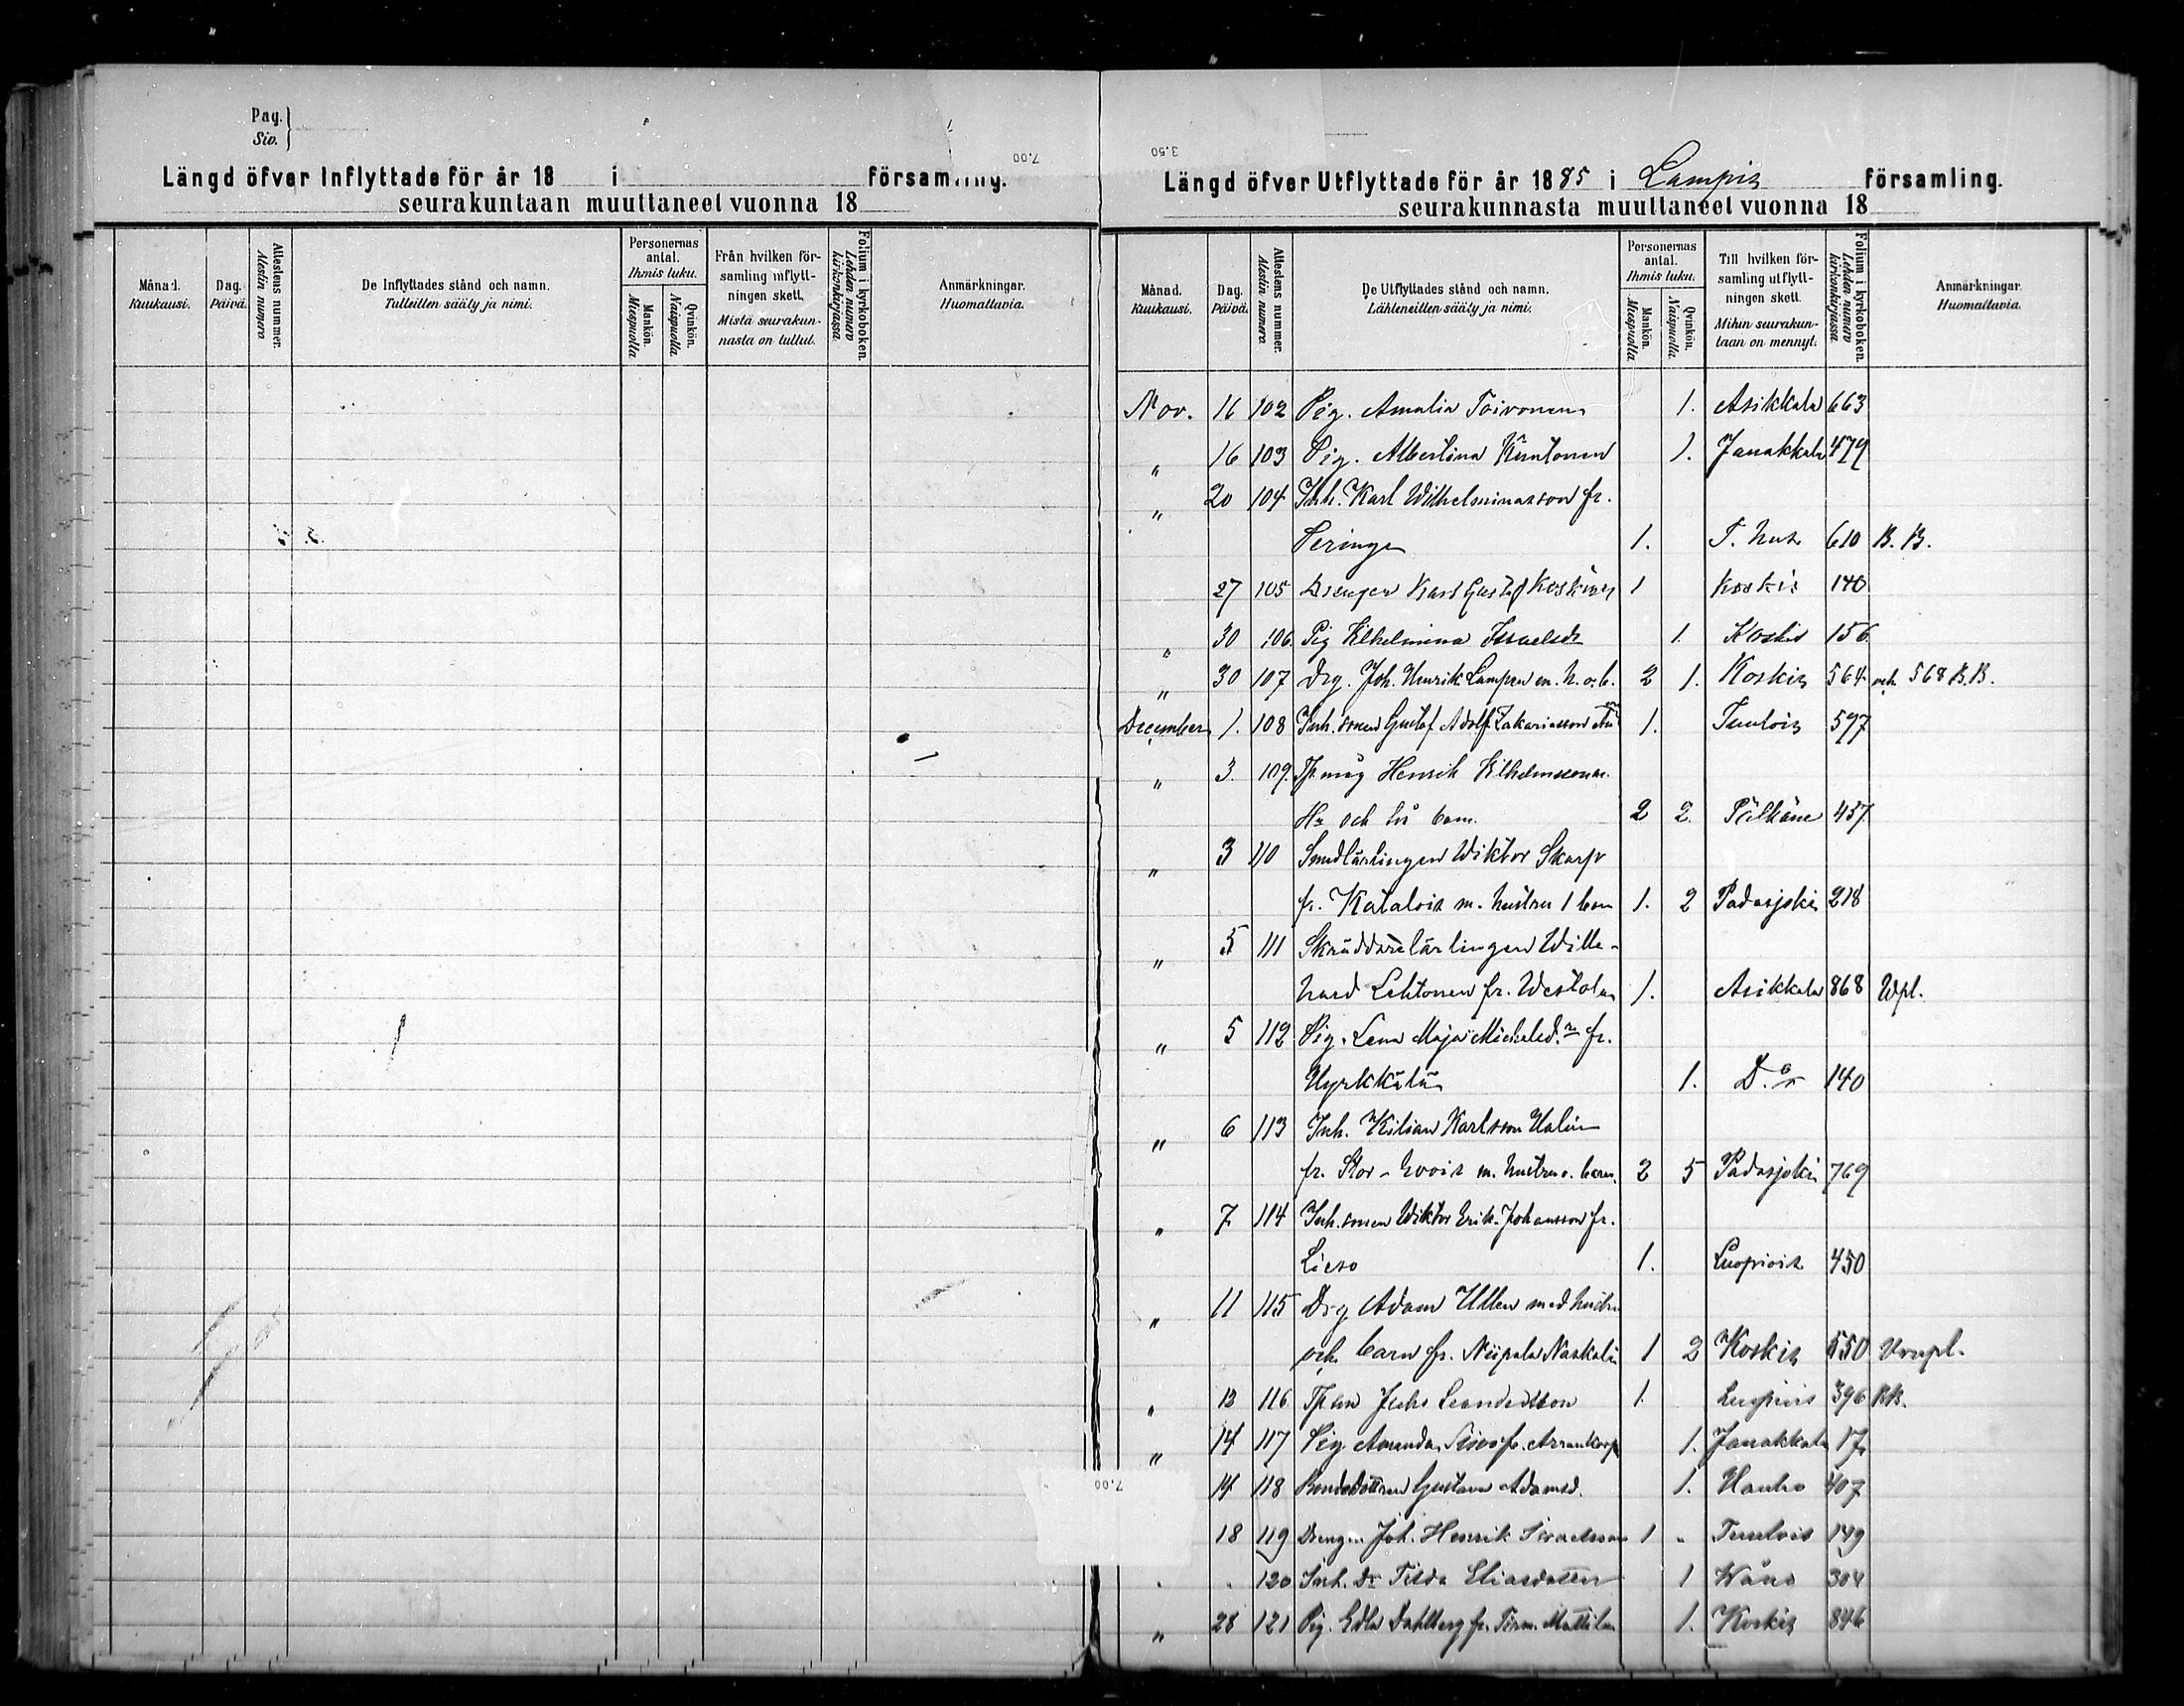 Pag.
Siv.
Längd öfver Inflyttade för år 18 i församl
seurakuntaan muuttaneet vuonna 18
7.00
Månad.
Kuukausi.
Dag.
Päivä.
Attestens nummer.
Alestin numero
De Inflyttades stånd och namn.
Tulleitten sääty ja nimi.
Personernas antal.
Ihmis luku.
Mankön.
Miespuolla
Qvinkön.
Naispuolla.
Från hvilken för-
samling inflytt-
ningen skett.
Mistä seurakun-
nasta on tullut.
Folium i kyrkoboken.
Lehden numero
kirkonkirjassa
Anmärkningar.
Huomattavia.
3.50
Längd öfver Utflyttade för år 1885 i Lampis församling.
seurakunnasta muuttaneet vuonna 18
Månad.
Kuukausi.
Dag.
Päivä.
Attestens nummer.
Alestin numero.
De Utflyttades stånd och namn.
Lähteneitten sääty ja nimi.
Personernas antal.
Ihmis luku.
Mankön.
Miespuolla
Qvinkön.
Naispuolla.
Till hvilken för-
samling utflytt-
ningen skett.
Mihin seurakun-
taan on mennyt.
Folium i kyrkoboken.
Lehden numero
kirkonkirjassa.
Anmärkningar.
Huomattavia.
Nov. 16 102 Pig. Amalia Toivonen 1. Asikkala 663
" 16 103 Pig. Albertina 1. Janakkala 479
" 20 104 Inh. Karl Wilhelminasson fr.
Seringe 1. T. hus 610 B. B.
27 105 Drengen Karl Gustaf Koskinen 1 Koskis 140
" 30 106. Pig Vilhelmina Israelsdr 1. Koskis 156
" 30 107 Drg. Joh. Henrik Lampen m. h. o. b. 2 1. Koskis 564 och 568 B.B.
December 1. 108 Inh. sonen Gustaf Adolf Zakariasson 1. Tuulois 597
" 3. 109. Henrik Vilhelmsson m.
Hu och två barn. 2 2. Pälkäne 457
" 3 110 Smedlärlingen Wiktor Skarp
fr. Katalois m. hustru 1 barn 1. 2 Padasjoki 218
" 5 111 Skräddarelärlingen Wille-
hard Lehtonen fr. Westola 1. Asikkala 868 Wpl.
" 5 112 Pig. Lena Maja Michelsd.r fr.
Hyrkkälä 1. D.o 140
" 6 113 Inh. Kilian Karlsson Halin
fr. Stor-Evois m. hustru o. barn. 2 5 Padasjoki 769
" 7 114 Inh. sonen Wiktor Erik Johansson fr.
Lieso 1. Luopiois 450
" 11 115 Drg Adam Ullen med hustru
och barn fr. Niipala 1 2 Koskis 550
" 12 116 Juho Leanderson 1. Luopiois 396
" 14 117 Pig Amanda fr. 1. Janakkala 17
7.00
14 118 Bondedottren Gustava Adamsd. 1. Hauho 407
18 119 Drengen Joh. Henrik Israelsson 1 " Tuulois 149
" " 120 Inh. Dr Tilda Eliasdotter 1 Wånå 304
" 28 121 Pig. Edla Dahlberg fr. Mattila 1. Koskis 846